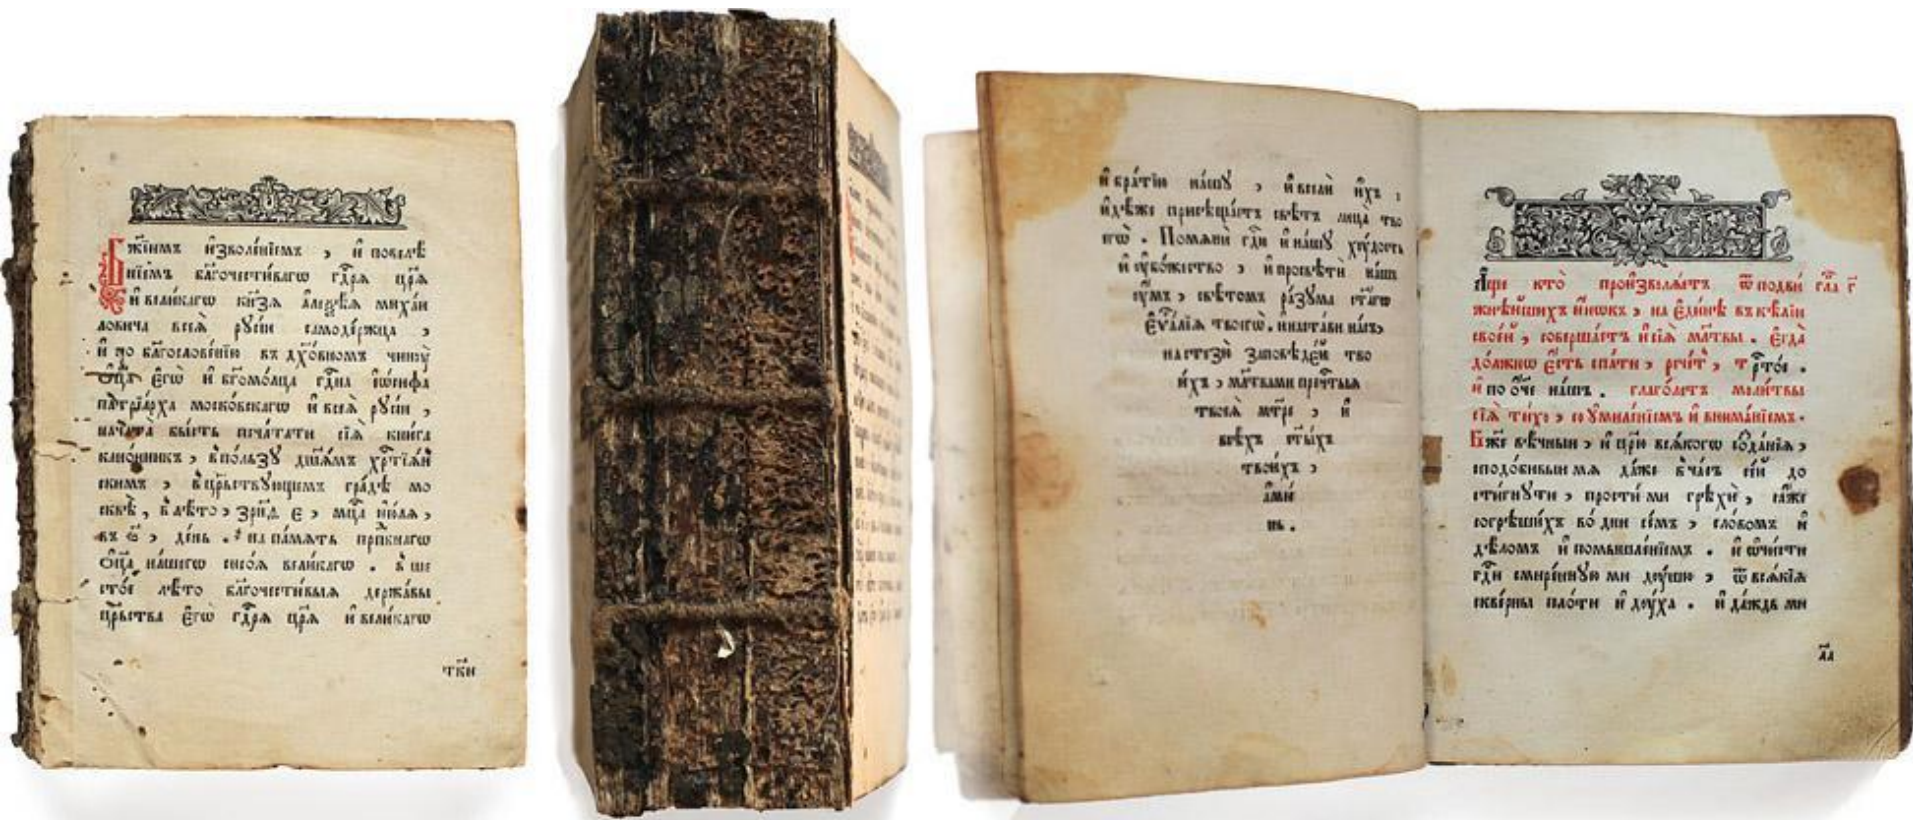 Бж҃їимъ и҆зволе́нїемъ , и҆ повелѣ
нїемъ бл҃гочести́вагѡ гдⷭ҇рѧ цр҃ѧ
и҆ вели́кагѡ кн҃зѧ а҆леѯѣ́ѧ миха́и
ловича всеѧ̀ рꙋсі́и самоде́ржца ,
и҆ по благослове́нїю въ дх҃о́вномъ чинꙋ̀
ѻ҆ц҃а̀ є҆гѡ̀ и҆ бг҃омо́лца гдⷭ҇на і҆ѡ́сифа
патрїа́рха моско́вскагѡ и҆ всеѧ̀ рꙋсі́и ,
нача́та бы́сть печа́тати сїѧ̀ кни́га
кано́нникъ , в̾ по́льзꙋ дш҃а́мъ хрⷭ҇тїѧ́н
скимъ , в̾ црⷭ҇твꙋющемъ гра́дѣ мо
сквѣ̀ , в̾ лѣ́то , ҂зрн҃д є , мцⷭ҇а
въ де́нь . на па́мѧть прпⷣбнагѡ
ѻ҆ц҃а̀ на́шегѡ сисо́ѧ вели́кагѡ . в̾ ше
сто́е лѣ́то бл҃гочести́выѧ держа́вы
црⷭ҇тва є҆гѡ̀ гдⷭ҇рѧ цр҃ѧ̀ и҆ вели́кагѡ
тк҃и
и҆ бра́тїю на́шꙋ , и҆ всѣ́хъ и҆́хъ :
и҆дѣ́же присѣща́етъ свѣ́тъ лица̀ тво
егѡ̀ . Помѧнѝ гдⷭ҇и и҆ на́шꙋ хꙋ́дость
и҆ ᲂу҆бо́жество , и҆ просвѣтѝ на́шъ
ᲂу҆́мъ , свѣ́томъ ра́зꙋма ст҃а́гѡ
є҆ѵⷢ҇а́лїѧ твоегѡ̀ . и҆ наста́ви на́съ ,
на стезѝ за́повѣдей тво
и́хъ , мл҃твами пречⷭ҇тыѧ
твоеѧ̀ мт҃ре , и҆
всѣ́хъ ст҃ы́хъ
твои́хъ ,
а҆ми́
нь .
А҆́ще кто̀ произволѧ́етъ ѿ подви гла г҃
жнѣ́йшихъ и҆́нѡкъ , на є҆ди́нѣ въ ке́лїи
свое́й , соверша́етъ и҆ сїѧ̀ мл҃твы . є҆гда̀
до́лжно є҆́сть спа́ти , рче́тъ , трⷭ҇то́е .
и҆ по ѻ҆́ч҃е на́шъ . глаго́летъ моли́твы
сїѧ̀ ти́хо , со ᲂу҆миле́нїемъ и҆ внима́нїемъ .
Бж҃е вѣ́чныи , и҆ цр҃ю всѧ́кагѡ созда́нїѧ ,
сподо́бивыи мѧ̀ да́же в̾ ча́съ се́й до
сти́гнꙋти , прости́ ми грѣхѝ , ꙗ҆̀же
согрѣши́хъ во дни се́мъ , сло́вомъ и҆
дѣ́ломъ и҆ помышле́нїемъ . и҆ ѡ҆чи́сти
гдⷭ҇и смире́ннꙋю ми дꙋ́шꙋ , ѿ всѧ́кїѧ
скве́рны пло́ти и҆ дꙋ́ха . и҆ да́ждь ми